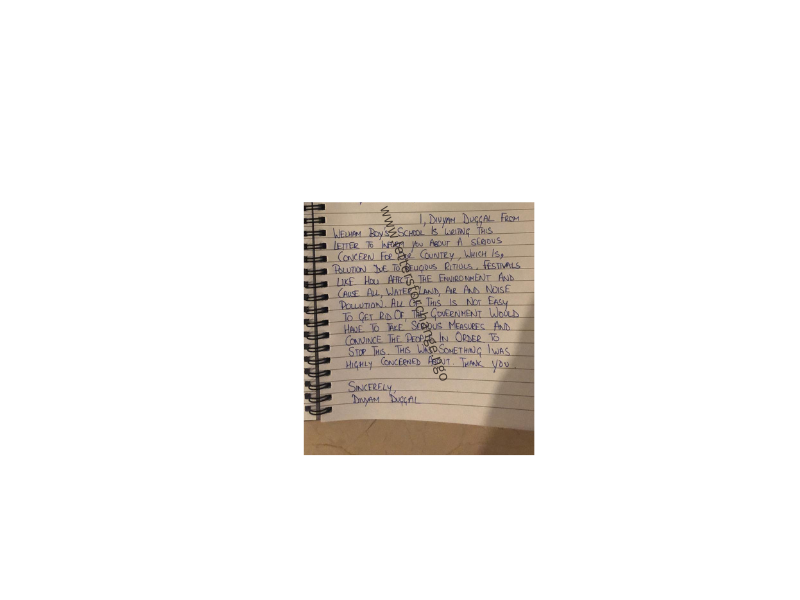 I, DIVJAM DUGGAL FROM
WELHAM BOYS SCHOOL IS WRITING THIS
LETTER TO INFORM YOU ABOUT A SERIOUS
CONCERN FOR OUR COUNTRY, WHICH IS,
POLUTION DUE TO RELIGIOUS RITIULS. FESTIVALS
LIKE HOLI AFFECT THE ENVIRONMENT AND
CAUSE ALL, WATER, LAND, AIR AND NOISE
POLLUTION. ALL OF THIS IS NOT EASY
TO GET RID OF, THE GOVERNMENT WOULD
HAVE TO TAKE SERIOUS MEASURES AND
CONVINCE THE PEOPLE IN ORDER TO
STOP THIS. THIS WAS SOMETHING I WAS
HIGHLY CONCERNED ABOUT. THANK YOU
SINCERELY,
DIVJAM DUGGAL